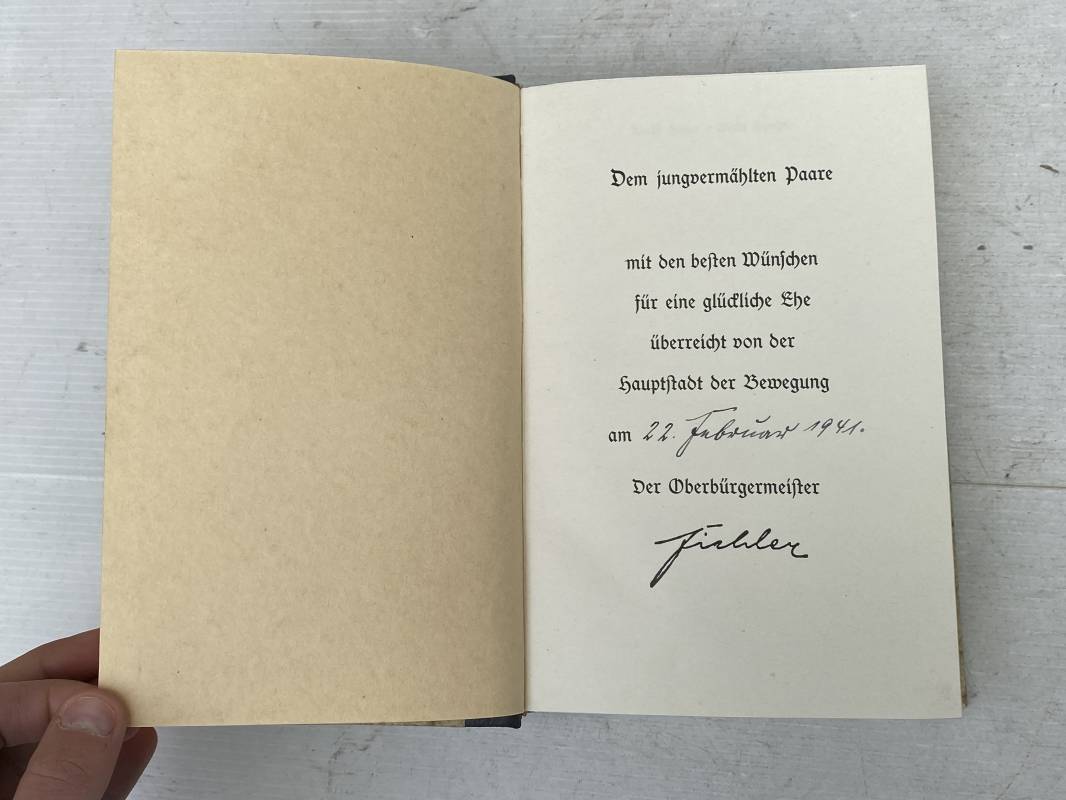 Dem jungvermählten Paare
mit den besten Wünschen
für eine glückliche Ehe
überreicht von der
Hauptstadt der Bewegung
am 22. Februar 1941.
Der Oberbürgermeister
Fiehler